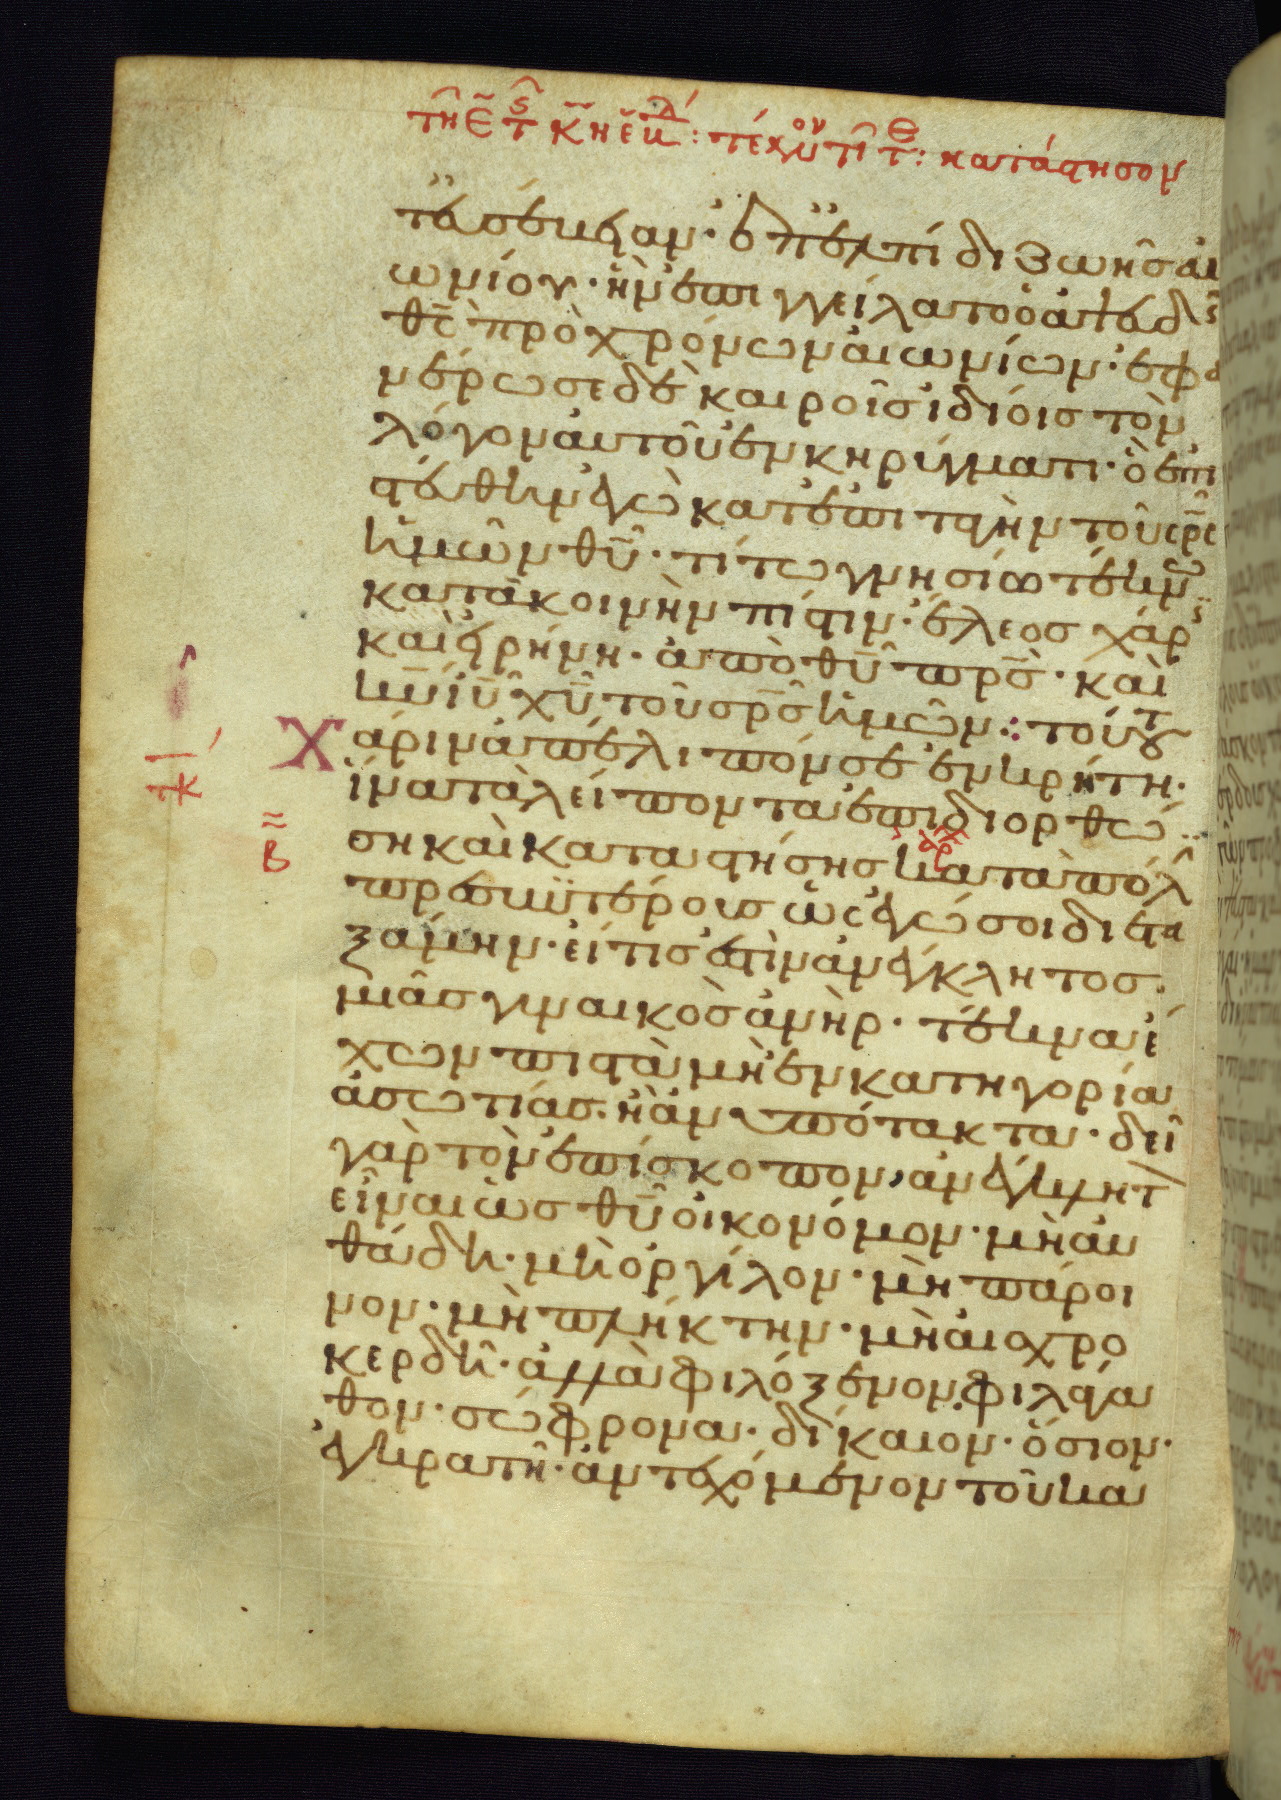 τέκνον τίτε: κατάστησον
τ᾽ εὐσέβειαν· ἐπ᾽ ἐλπίδι ζωῆς αἰ
ωνίου· ἣν ἐπηγγείλατο ὁ ἀψευδὴς
θς πρὸ χρόνων αἰωνίων· ἐφα
νέρωσε δὲ καιροῖς ἰδίοις τὸν
λόγον αὐτοῦ ἐν κηρύγματι· ὃ ἐπι
στεύθην ἐγὼ κατ᾽ ἐπιταγὴν τοῦ σρς
ἡμῶν θυ· τίτω γνησίω τέκνω
κατὰ κοινὴν πίστιν· ἔλεος χάρις
καὶ εἰρήνη· ἀπὸ θυ πρς· καὶ
κυ ιυ χυ τοῦ σρς ἡμῶν: τούτου
χάριν ἀπέλιπόν σε ἐν κρήτη·
ἵνα τὰ λείποντα ἐπιδιορθώ
ση καὶ καταστήσης κατὰ πόλιν
πρεσβυτέροις ὡς ἐγώ σοι διετα
ξάμην· εἴ τις ἐστὶν ἀνέγκλητος·
μιᾶς γυναικὸς ἀνὴρ· τέκνα ἔ
χων πιστὰ μὴ ἐν κατηγορία
ἀσωτίας· ἢ ἀνυπότακτα· δεῖ
γὰρ τὸν ἐπίσκοπον, ἀνέγκλητ
εἶναι ὡς θυ οἰκονόμον· μὴ αὐ
θάδη· μὴ ὀργίλον· μὴ πάροι
νον· μὴ πλήκτην· μὴ αἰσχρο
κερδῆ· ἀλλὰ φιλόξενον φιλάγα
θον· σώφρονα· δίκαιον· ὅσιον·
ἐγκρατῆ· ἀντεχόμενον τοῦ κα
Β